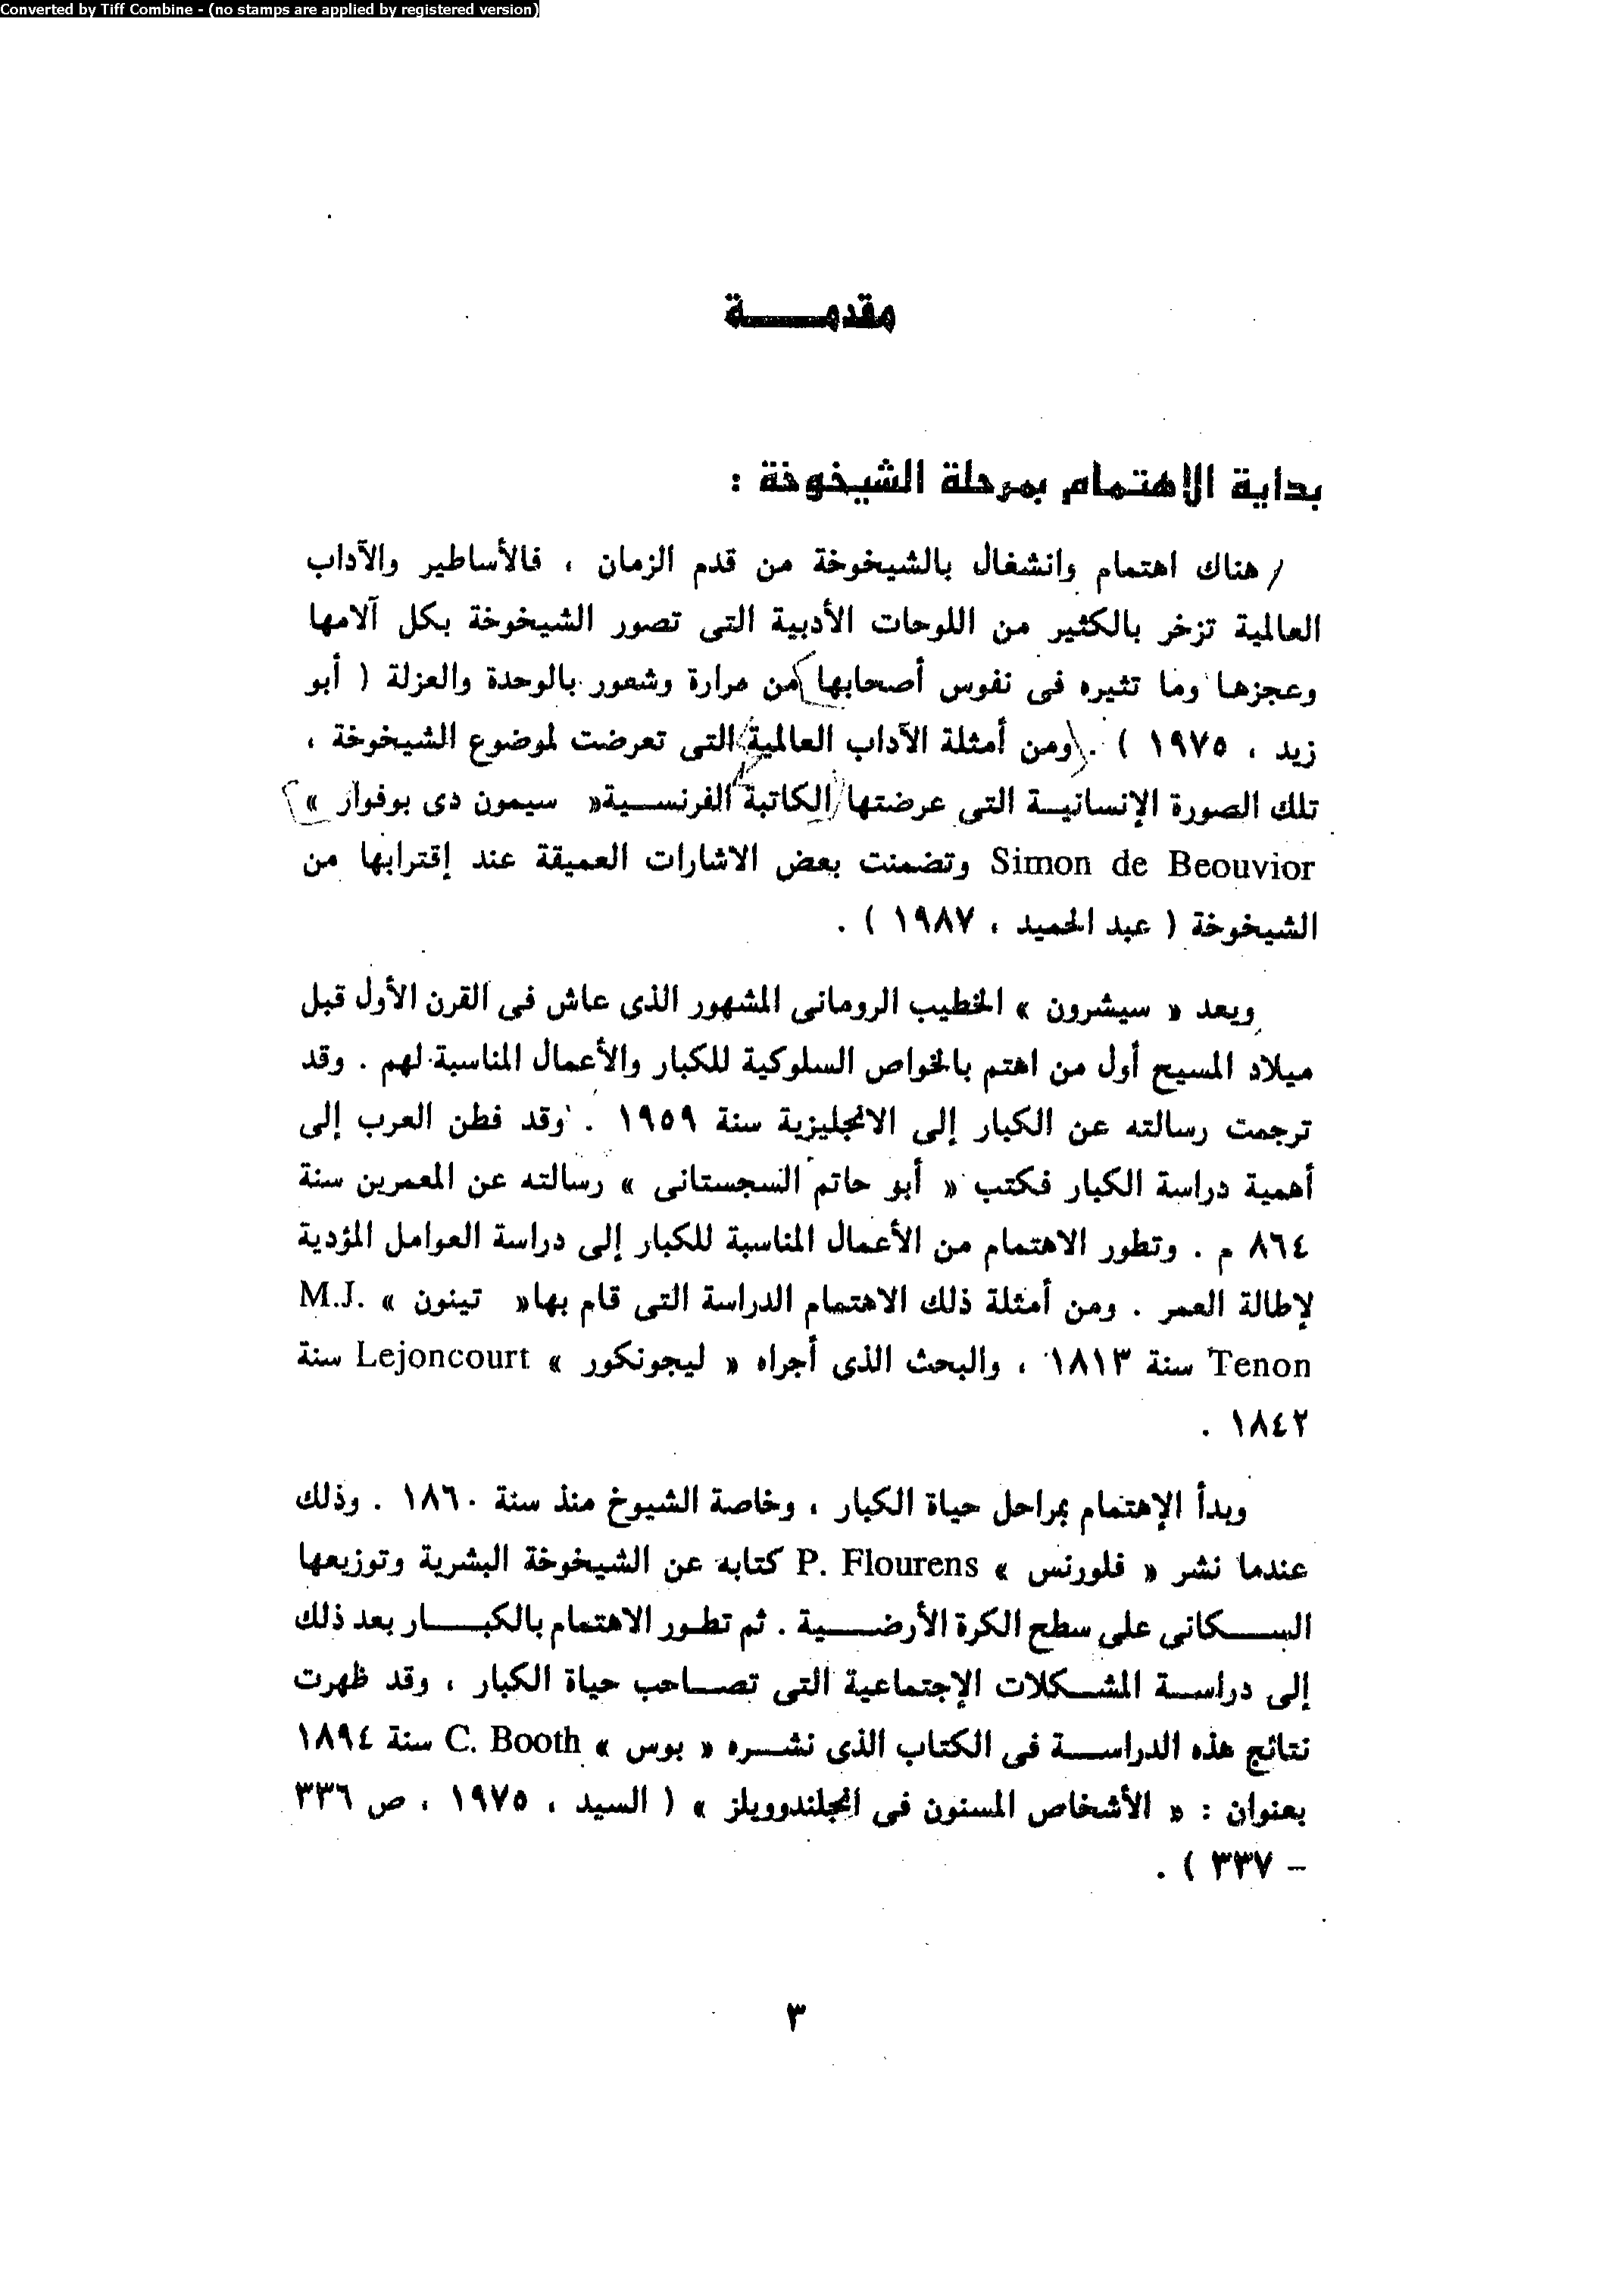 Converted by Tiff Combine - (no stamps are applied by registered version)
مقدمــــة
بداية الاهتمام بمرحلة الشيخوخة :
هناك اهتمام وانشغال بالشيخوخة من قدم الزمان ، فالأساطير والآداب
العالمية تزخر بالكثير من اللوحات الأدبية التى تصور الشيخوخة بكل آلامها
وعجزها وما تثيره فى نفوس أصحابها من مرارة وشعور بالوحدة والعزلة ( أبو
زيد ، ١٩٧٥ ) . ومن أمثلة الآداب العالمية التى تعرضت لموضوع الشيخوخة ،
تلك الصورة الإنسانيــة التى عرضتها الكاتبة الفرنســية « سيمون دى بوفوار »
Simon de Beouvior وتضمنت بعض الاشارات العميقة عند إقترابها من
الشيخوخة ( عبد الحميد ، ١٩٨٧ ) .
ويعد « سيشرون » الخطيب الرومانى المشهور الذى عاش فى القرن الأول قبل
ميلاد المسيح أول من اهتم بالخواص السلوكية للكبار والأعمال المناسبة لهم . وقد
ترجمت رسالته عن الكبار إلى الانجليزية سنة ١٩٥٩ . وقد فطن العرب إلى
أهمية دراسة الكبار فكتب « أبو حاتم السجستانى » رسالته عن المعمرين سنة
٨٦٤ م . وتطور الاهتمام من الأعمال المناسبة للكبار إلى دراسة العوامل المؤدية
لإطالة العمر . ومن أمثلة ذلك الاهتمام الدراسة التى قام بها « تينون » M.J.
Tenon سنة ١٨١٣ ، والبحث الذى أجراه « ليجونكور » Lejoncourt سنة
١٨٤٢ .
وبدأ الإهتمام بمراحل حياة الكبار ، وخاصة الشيوخ منذ سنة ١٨٦٠ . وذلك
عندما نشر « فلورنس » P. Flourens كتابه عن الشيخوخة البشرية وتوزيعها
الســكانى على سطح الكرة الأرضــــية . ثم تطـور الاهتمام بالكبــــار بعد ذلك
إلى دراســة المشــكلات الإجتماعية التى تصــاحب حياة الكبار ، وقد ظهرت
نتائج هذه الدراســة فى الكتاب الذى نشــره « بوس » C. Booth سنة ١٨٩٤
بعنوان : « الأشخاص المسنون فى انجلندوويلز » ( السيد ، ١٩٧٥ ، ص ٣٣٦
– ٣٣٧ ) .
٣